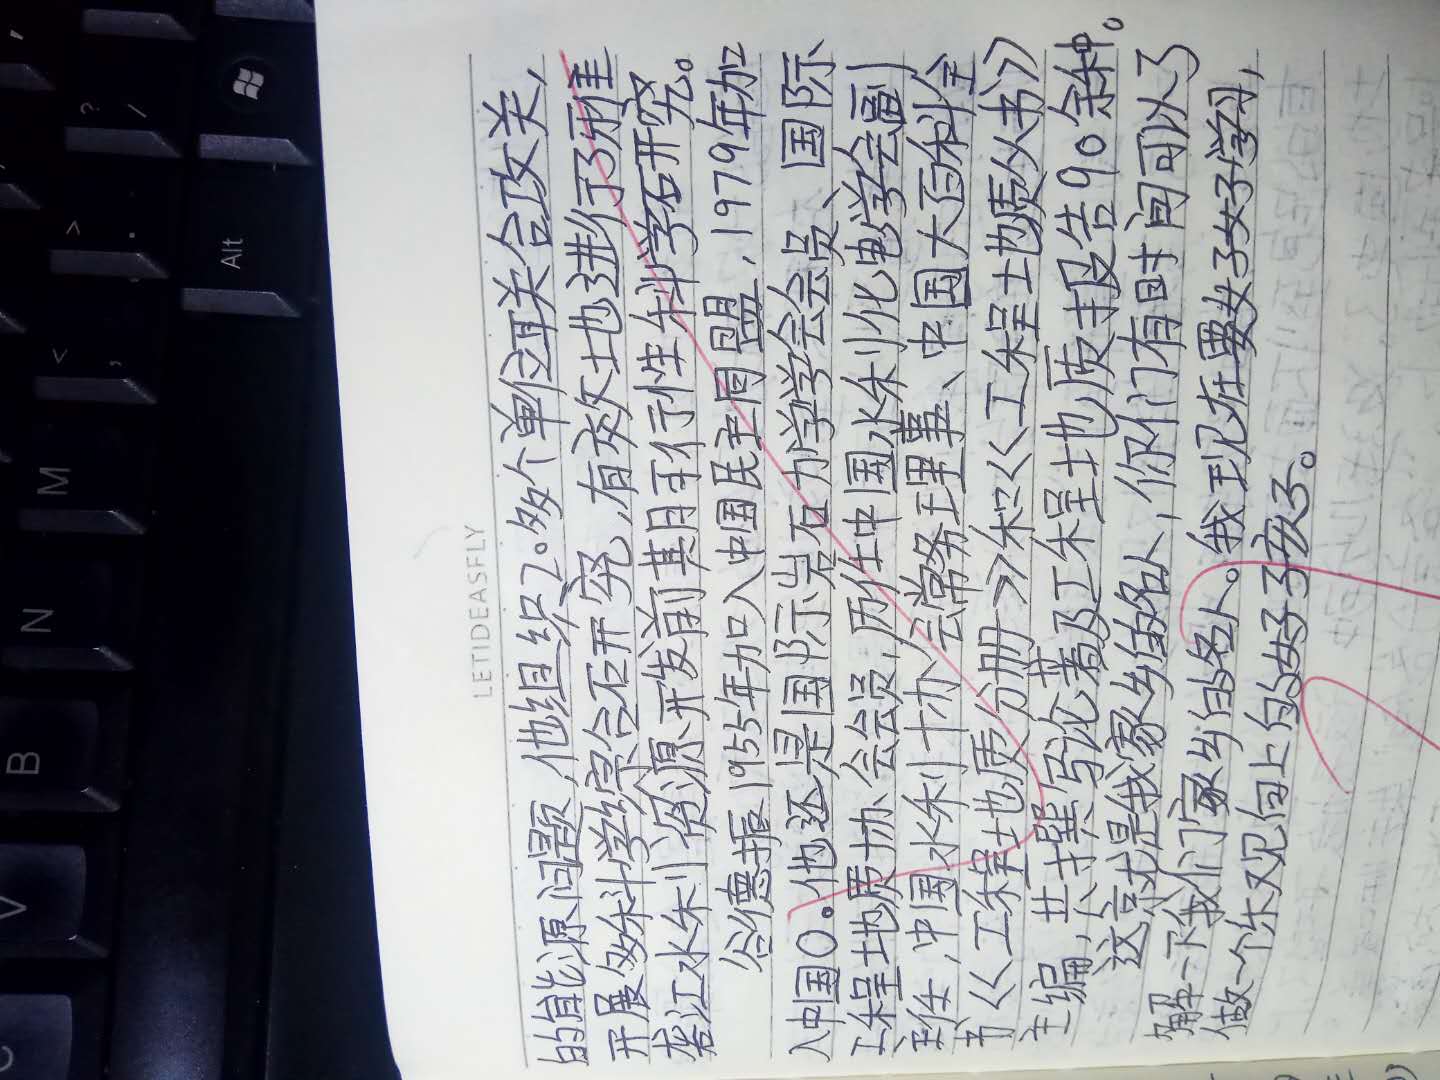 LETIDEASFLY
的能源问题,他组织20多个单位联合攻关,
开展多科学综合石开究,有效地进行了雅
砻江水利资源开发前其月于行性科学石开究。
谷德振1955年加入中国民主同盟,1979年加
入中国〇。他还是国际岩石力学学会会员、国际
工程地质协会会员,历任中国水利化电学会副
理任,中国水利十办会常务理事、中国大百科全
书《工程地质分册》和《工程土地质分书》
主编,公共撰写论著及工程地质报告90余种。
这就是我家乡的名人,你们有时间可以了
解一下我们家乡的名人。我现在要好好学习,
做一个乐观向上的好孩子。
Alt
?
/
>
.
<
,
M
N
B
V
C